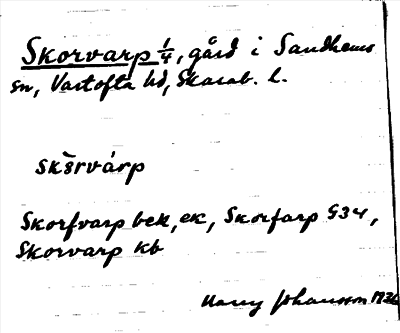 Skorvarp 1/4, gård i Sandhems
sn, Vartofta hd, Skarab. l.
skòrvárp
Skorfvarp bek, ek, Skorfarp G34,
Skorvarp kb
Harry Johansson 1926